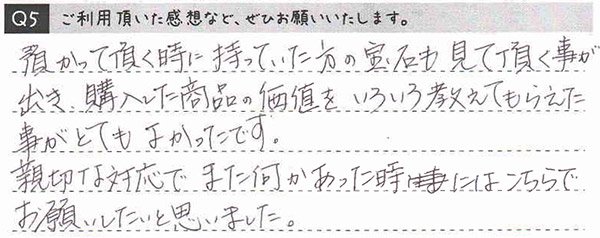 Q5 ご利用頂いた感想など、ぜひお願いいたします。
預かって頂く時に持っていた方の宝石も見て頂く事が
出き、購入した商品の価値をいろいろ教えてもらえた
事がとてもよかったです。
親切な対応でまた何かあった時にはこちらで
お願いしたいと思いました。